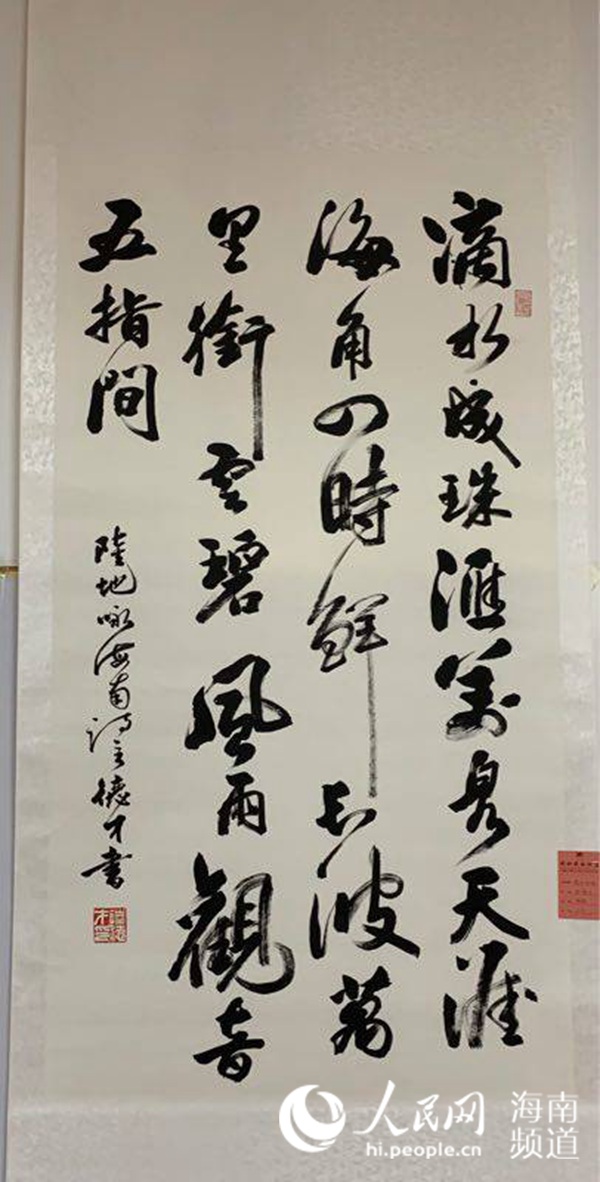 滴水成珠滙萬泉天涯
海角四時鮮長波萬
里銜雲碧風雨觀音
五指間
陸地咏海南詩王德才書
人民网
hi.people.cn
海南
频道